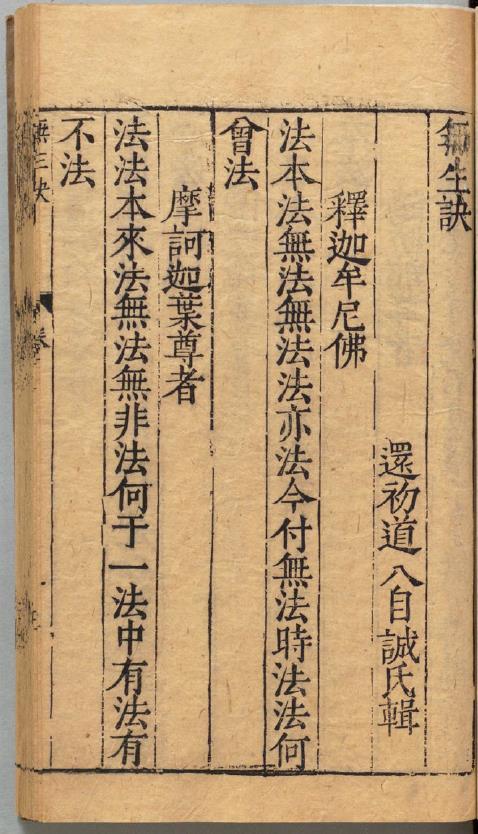 無生訣
還初道人自誠氏輯
釋迦牟尼佛
法本法無法無法法亦法今付無法時法法何
曾法
摩訶迦葉尊者
法法本來法無法無非法何于一法中有法有
不法
無生訣
卷